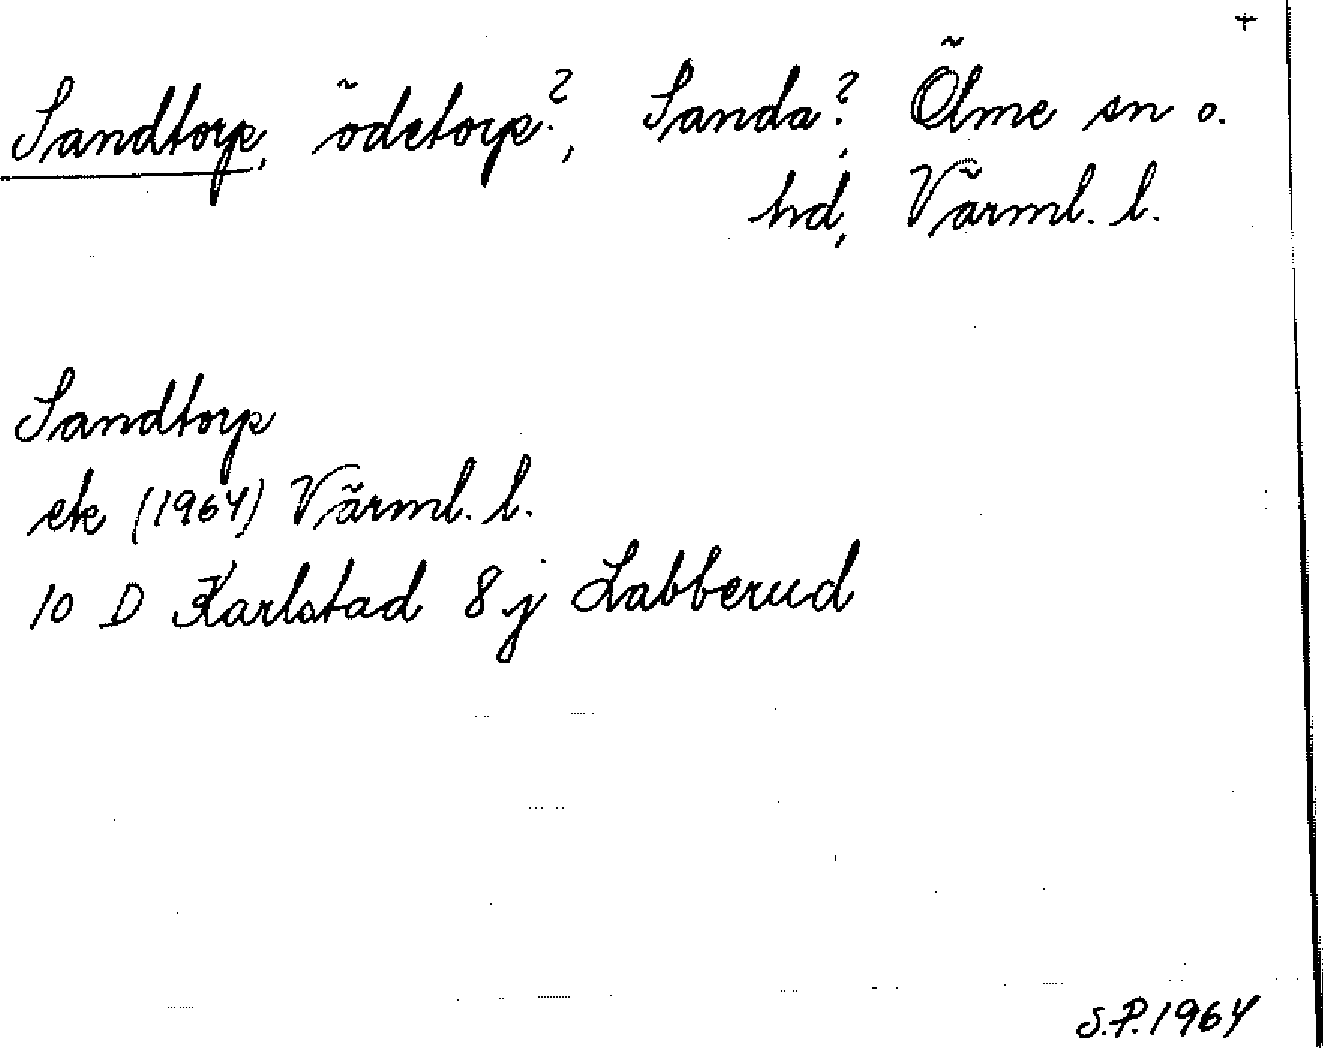 +
Sandtorp, ödetorp?, Sanda?, Ölme sn o.
hd, Värml. l.
Sandtorp
ek (1964) Värml. l.
10 D Karlstad 8 j Labberud
S.P. 1964